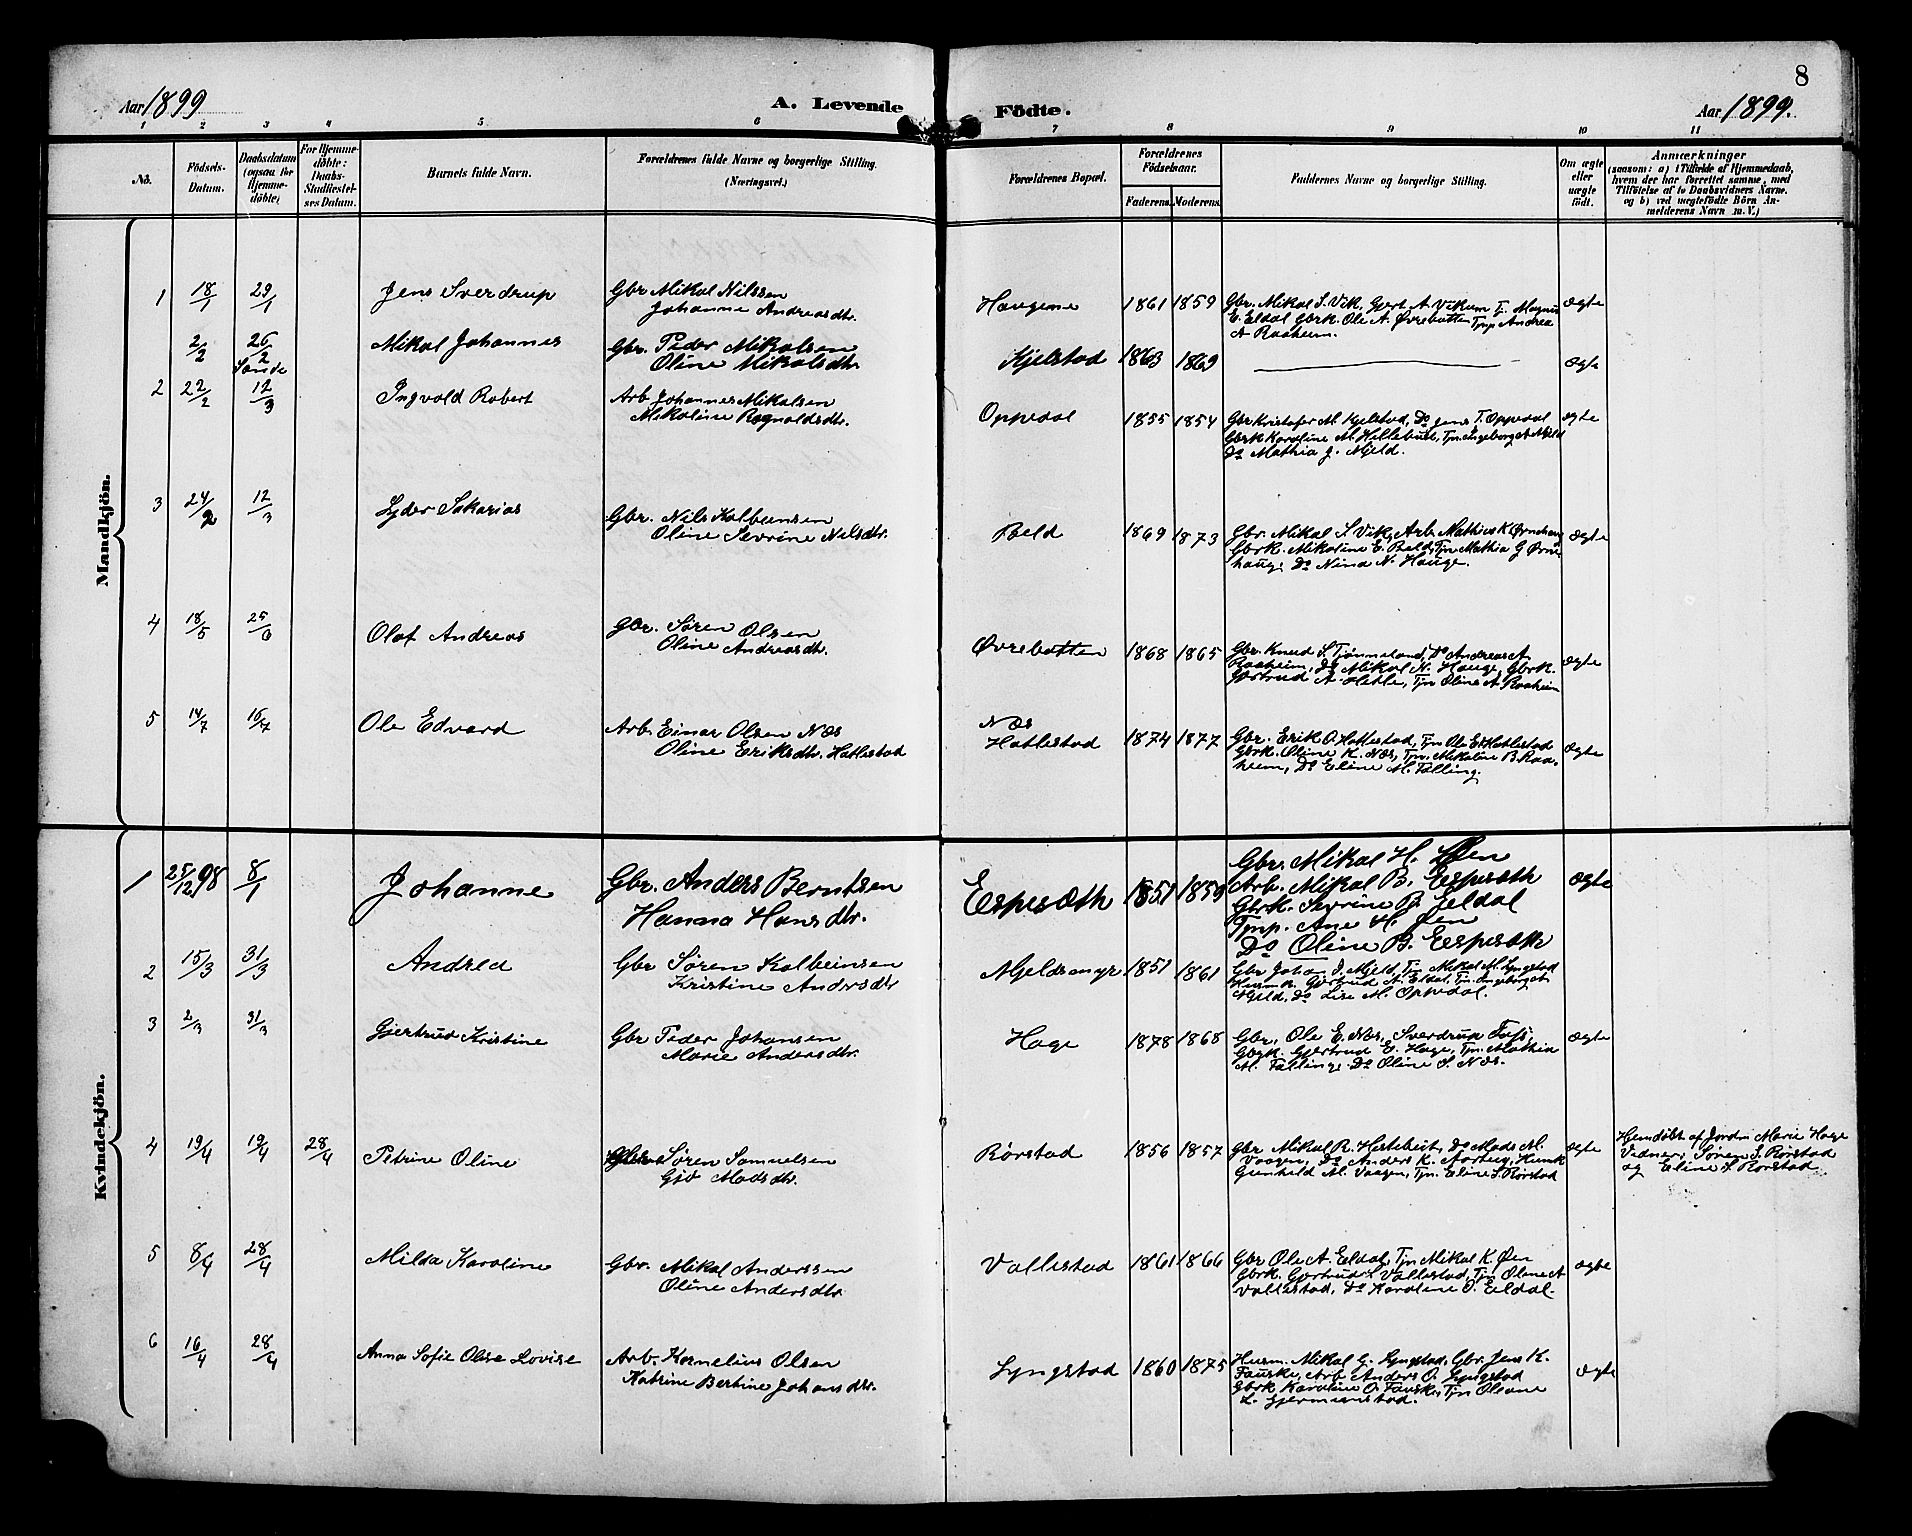 8
Aar 1899
A. Levende
Födte.
Aar 1899.
1 2 3 4 5 6 7 8 9 10 11
No.
Födsels-
Datum.
Daabsdatum
(ogsaa for
Hjemme-
döbte)
For Hjemme-
döbte:
Daabs-
Stadfæstel-
ses Datum.
Barnets fulde Navn.
Forældrenes fulde Navne og borgerlige Stilling.
(Næringsvei.)
Forældrenes Bopæl.
Forældrenes
Födselsaar.
Faderens. Moderens.
Faddernes Navne og borgerlige Stilling.
Om ægte
eller
uægte
født.
Anmærkninger
(saasom: a) i Tilfælde af Hjemmedaab,
hvem der har forrettet samme, med
Tilföielse af to Daabsvidners Navne,
og b) ved uægtefödte Börn An-
melderens Navn m. V.)
Mandkjön.
1 18/1 29/1 Jens Sverdrup
Gbr Mikal Nilssen
Johanne Andreasdtr.
Haugene 1861 1859
Gbr. Mikal S. Vik, Gjert A. Vikum Tj. Magnus
E. Eldal Gbrk. Ole A. Øvrebotten Tjnp Andrea
A Raaheim.
ægte
2/2 26/2 Mikal Johannes
Sande
Gbr. Peder Mikalsen
Oline Mikalsdtr.
Kjelstad 1863 1869
ægte
2 22/2 12/3 Ingvald Robert
Arb Johannes Mikalsen
Mikoline Ragnaldsdtr.
Oppedal 1855 1854
Gbr Kristofer M. Kjelstad, Do Jens T. Oppedal
Gbrk Karoline M. Hellebust, Tjn. Ingeborg A Mjeld
Do Mathia J. Mjeld.
ægte
3 24/2 12/3 Lyder Sakarias
Gbr. Nils Kolbeinsen
Oline Sevrine Nilsdtr.
Beld 1869 1873
Gbr. Mikal S Vik, Arb Mathias K Ørnehaug
Gbrk. Mikaline E. Beld, Tjn Mathia G Ørne-
haug. Do Nina N. Hauge.
ægte
4 18/5 25/6 Olaf Andreas
Gbr. Søren Olsen
Oline Andreasdtr.
Øvrebotten 1868 1865
Gbr Knud S. Tjønneland, Do Andreas A.
Raaheim, Do Mikal N. Hauge, Gbrk.
Gjertrud A. Hetle, Tjn Oline A. Raaheim
ægte
5 14/7 16/7 Ole Edvard
Arb. Einar Olsen Næs
Oline Eriksdtr. Hatlestad
Næs
Hatlestad 1874 1877
Gbr. Erik O. Hatlestad, Tjn Ole E. Hatlestad
Gbrk. Oline K. Næs, Tjn. Mikaline B. Raa-
heim, Do Eline M. Falling.
ægte
Kvindekjön.
1 25/12 98 8/1 Johanne
Gbr. Anders Berntsen
Hanna Hansdtr.
Espesæth 1851 1859
Gbr. Mikal H. Øen
Arb. Mikal B. Espesæth
Gbrk. Sevrine B. Eldal
Tjnp. Ane H. Øen
Do Oline B. Espesæth
ægte
2 15/3 31/3 Andrea
Gbr Søren Kolbeinsen
Kristine Andersdtr
Mjeldsmyr 1851 1861
Gbr Johan J. Mjeld, Tjn Mikal M. Lyngstad
Husmk. Gjertrud A. Eldal, Tjn. Ingeborg A.
Mjeld, Do Lise M. Oppedal.
3 2/3 31/3 Gjertrud Kristine
Gbr Peder Johansen
Marie Andersdtr.
Hage 1878 1868
Gbr. Ole E. Næs, Sverdrup
Gbrk. Gjertrud E. Hage, Tjn. Mathia
M. Falling. Do Oline S. Næs.
ægte
4 19/4 19/4 28/4 Petrine Oline
Søren Samuelsen
Madsdtr.
Rørstad 1856 1857
Gbr Mikal R. Hestebeit, Do Mads M.
Vaagen, Do Anders K. Husmk
Gunhild M. Vaagen, Tjn. Eline S. Rørstad
ægte
Hjemdøbt af Jordm Marie Hage
Vidner: Søren S. Rørstad
og Eline S Rørstad
5 8/4 28/4 Milda Karoline
Gbr. Mikal Anderssen
Oline Andersdtr.
Vallestad 1861 1866
Gbr Ole A. Eldal, Tjn Mikal K. Øen
Gbrk. Gjertrud S. Vallestad, Tjn Oline A
Vallestad, Do Karoline O. Eldal.
ægte
6 16/4 28/4 Anna Sofie Oline Lovise
Arb. Kornelius Olsen
Katrine Bertine Johansdtr.
Lyngstad 1860 1875
Husm. Mikal G. Lyngstad, Gbr. Jens K.
Fauske, Arb Anders O. Lyngstad
Gbrk Karoline O. Fauske, Tjn Oline
L. Gjermundstad.
ægte